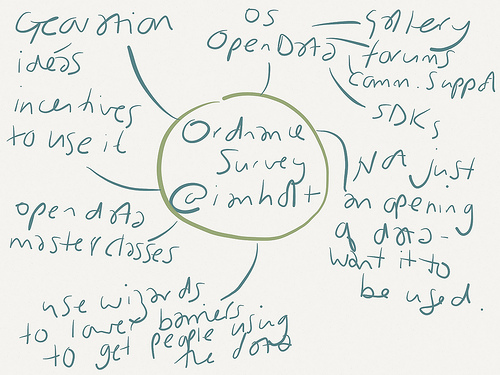 Geovation
ideas
incentives
to use it
OS
OpenData
gallery
forums
Comm. Support
SDKs
Ordnance
Survey
@ianholt
Not just
an opening
of data -
want it to
be used.
open data
masterclasses
use wizards
to lower barriers
to get people using
the data